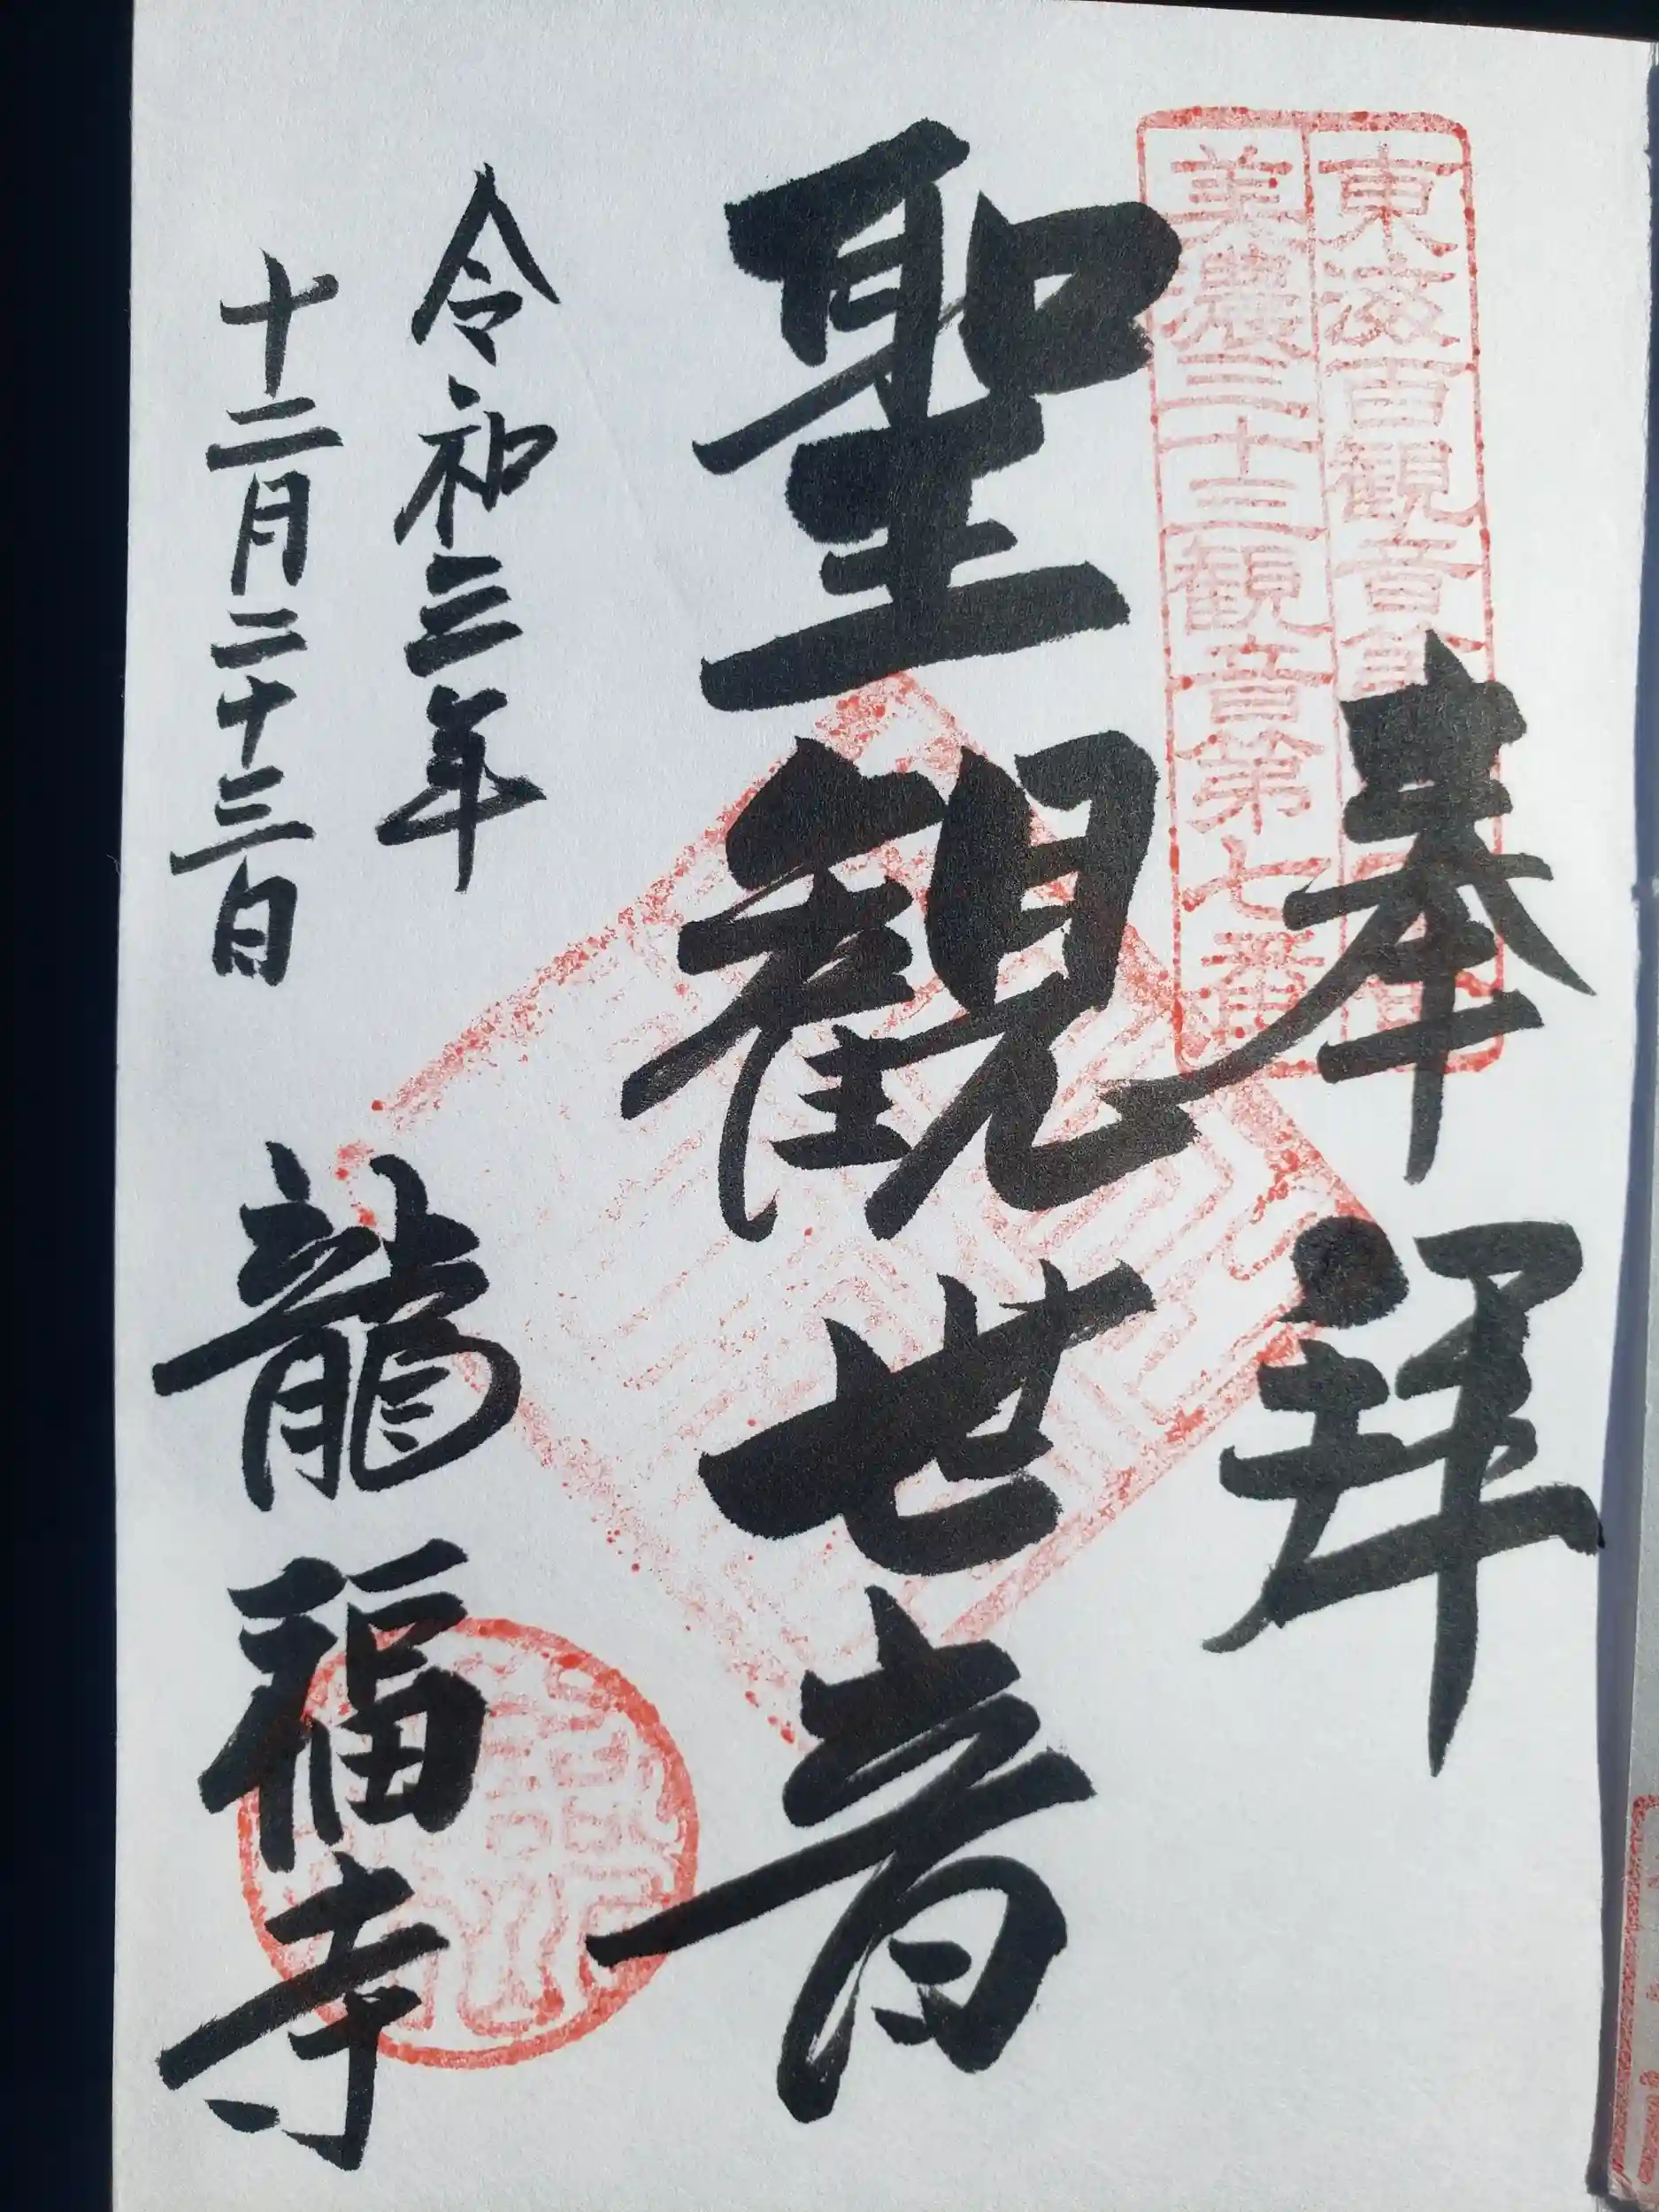 東海百観音
美濃三十三観音第七番
奉拝
聖観世音
令和三年
十二月二十三日
龍福寺